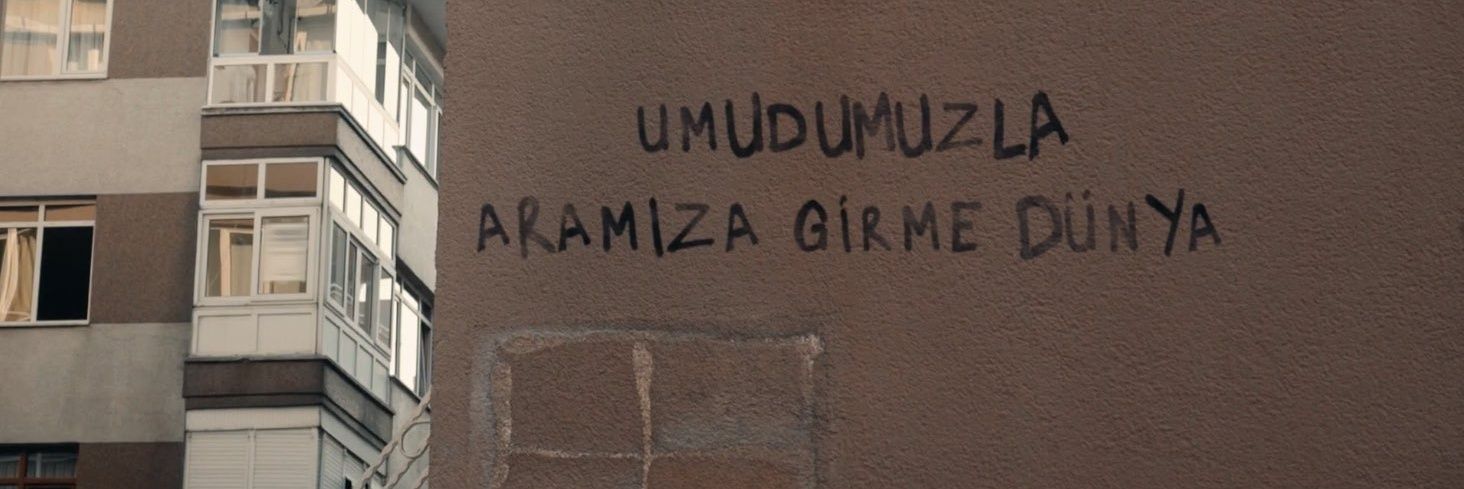 UMUDUMUZLA
ARAMIZA GİRME DÜNYA